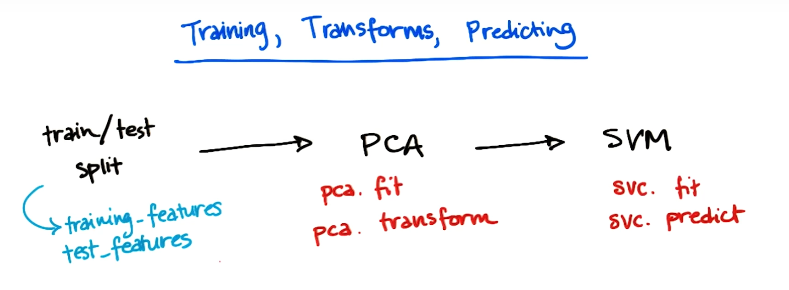 Training, Transforms, Predicting
train/test
split
training_features
test_features
PCA
pca. fit
pca. transform
SVM
svc. fit
svc. predict